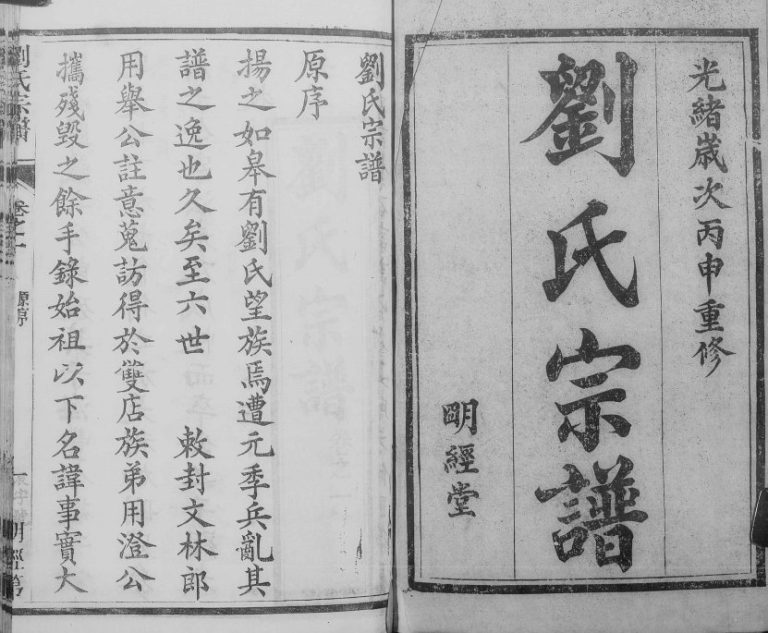 光緒歲次丙申重修
劉氏宗譜
明經堂
劉氏宗譜
原序
揚之如皋有劉氏望族焉遭元季兵亂其
譜之逸也久矣至六世　敕封文林郎
用舉公註意蒐訪得於雙店族弟用澄公
攜殘毀之餘手錄始祖以下名諱事實大
劉氏宗譜
卷之一
原序
一
明經